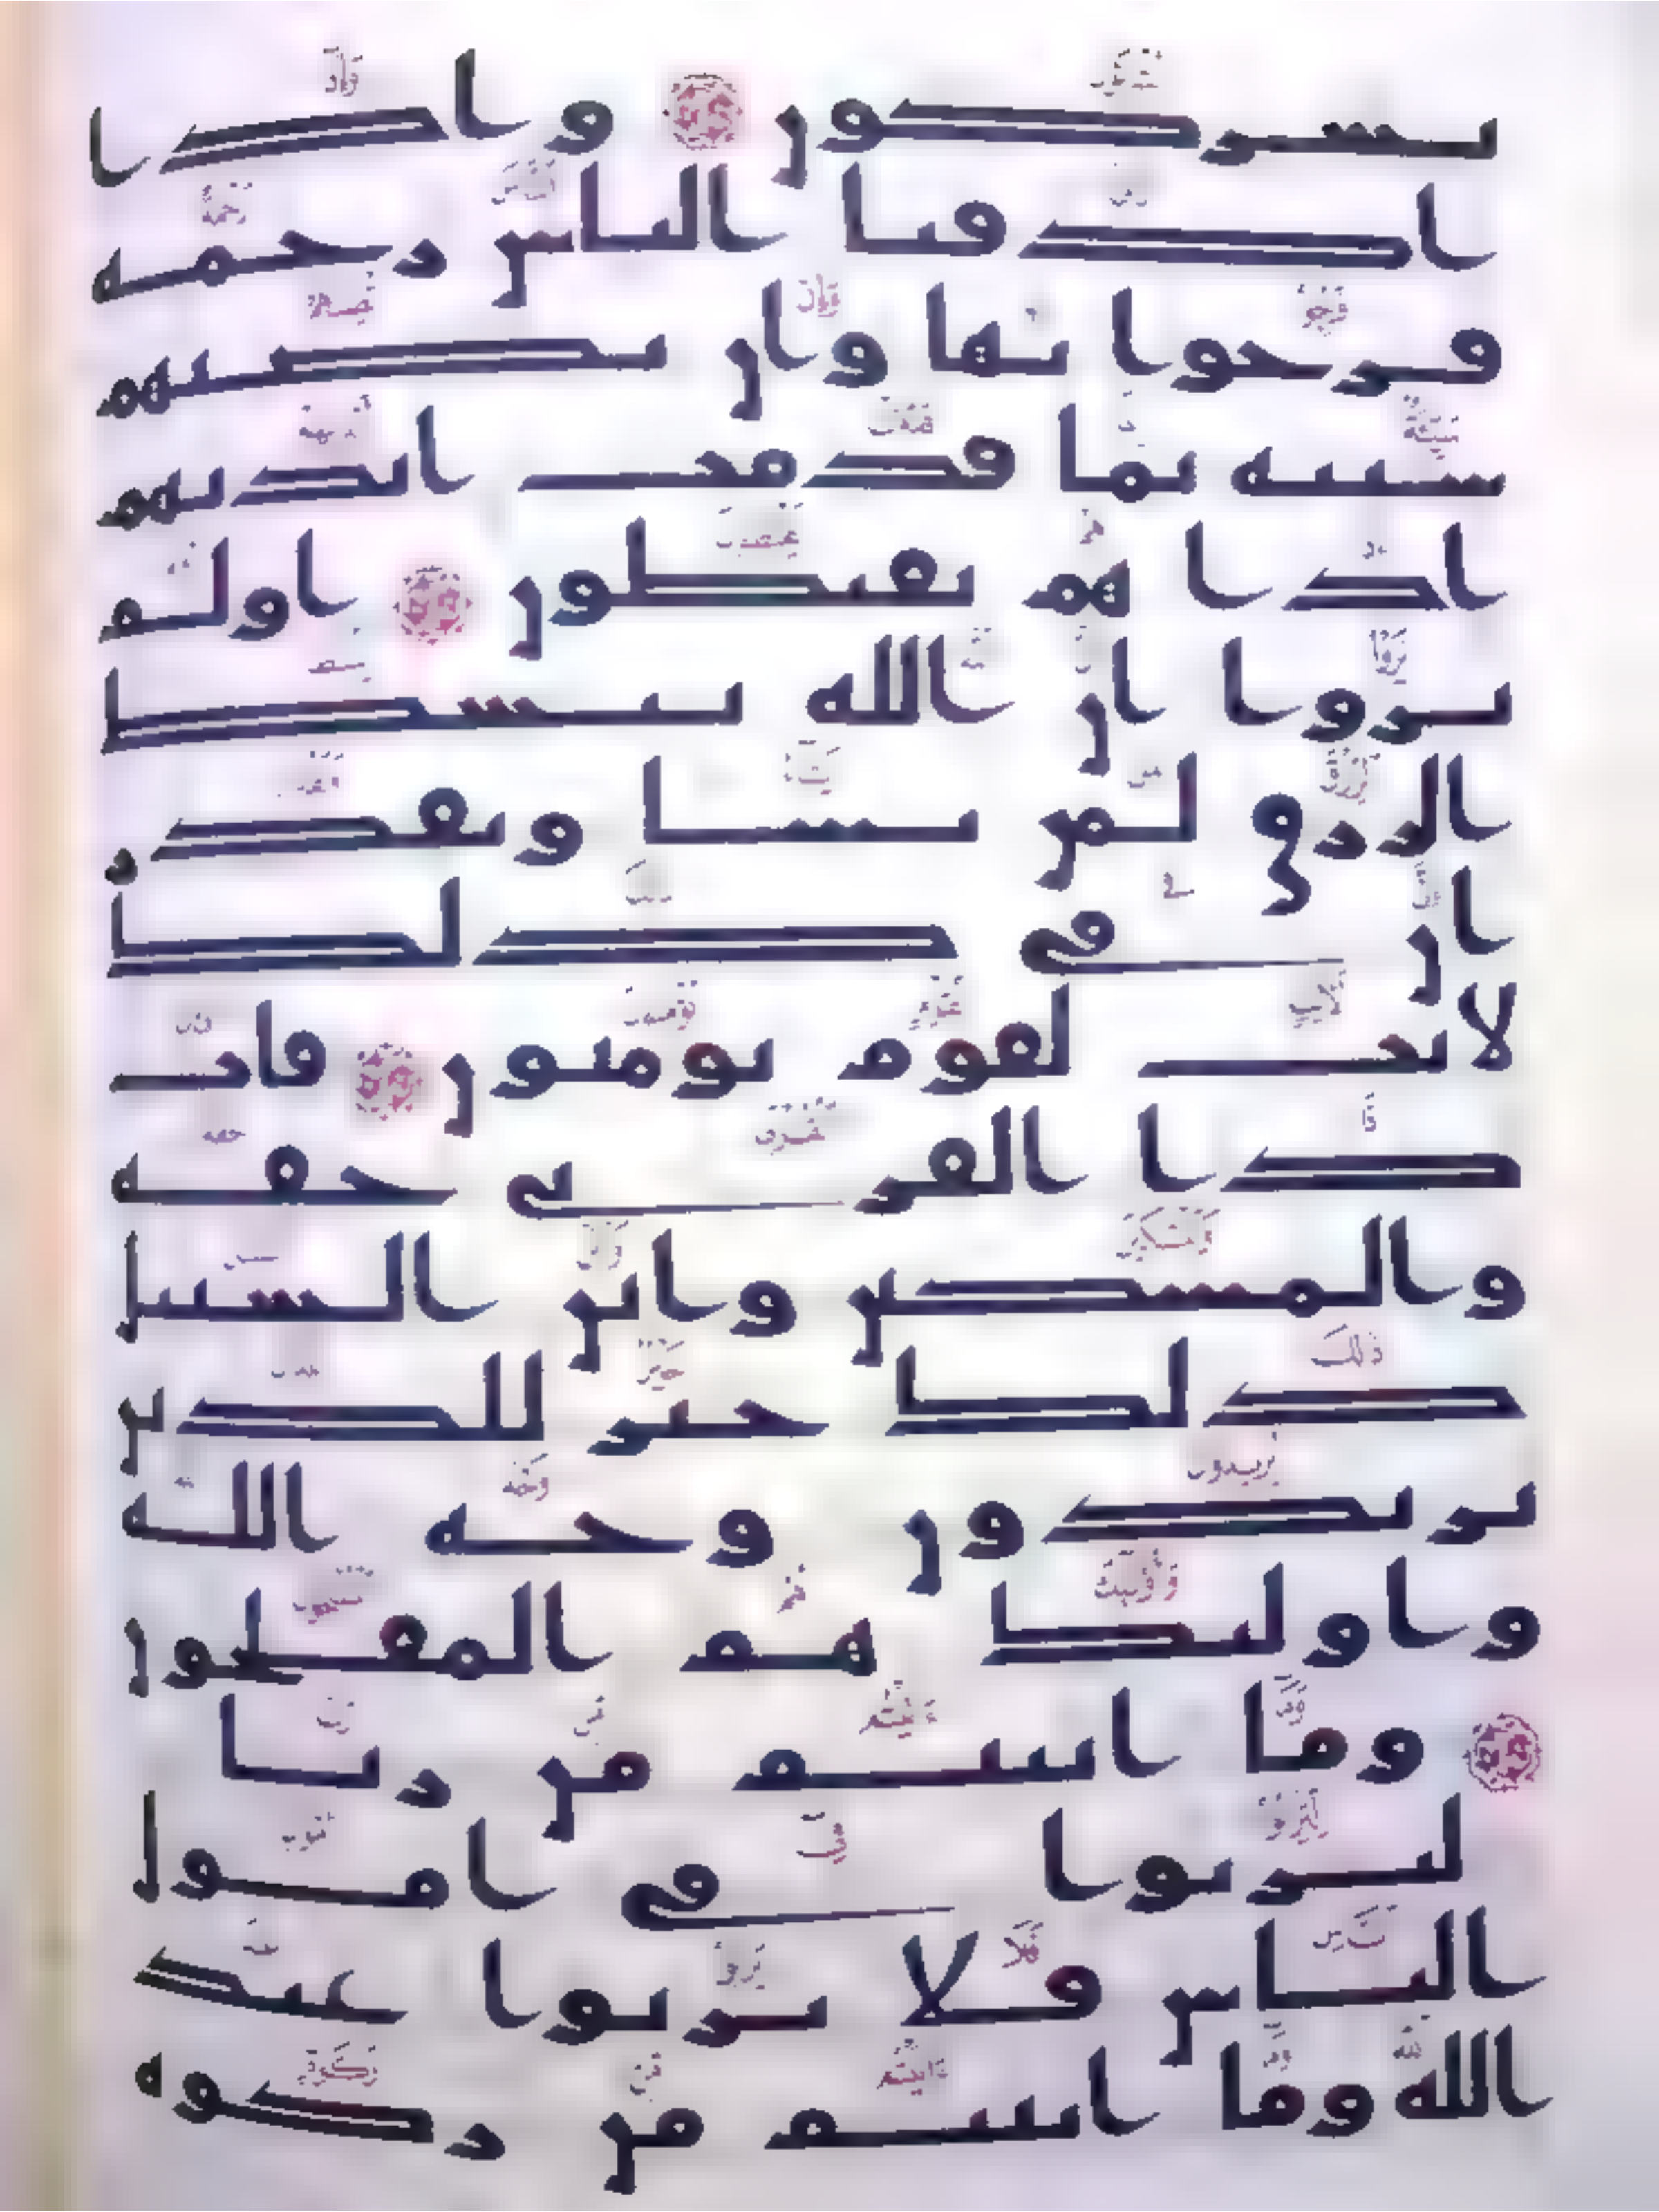 يشركون واذا
اذقنا الناس رحمة
فرحوا بها وان تصبهم
سيئة بما قدمت ايديهم
اذا هم يقنطون اولم
يروا ان الله يبسط
الرزق لمن يشا ويقدر
ان في ذلك
لايت لقوم يومنون فات
ذا القربى حقه
والمسكين وابن السبيل
ذلك خير للذين
يريدون وجه الله
واولئك هم المفلحون
وما اتيتم من ربا
ليربوا في امول
الناس فلا يربوا عند
الله وما اتيتم من زكوه